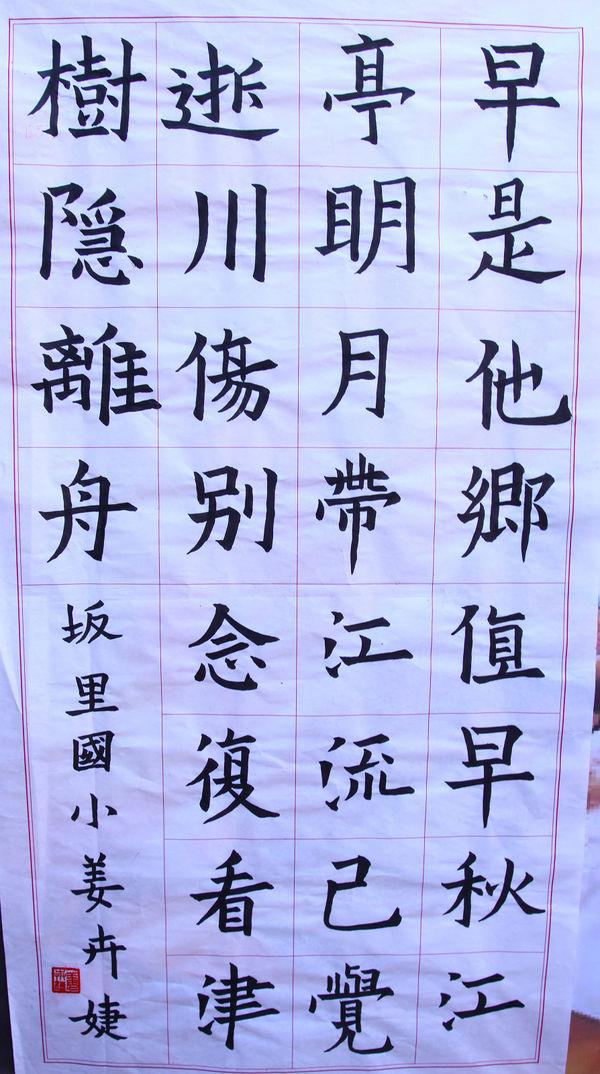 早是他鄉值早秋江
亭明月帶江流已覺
逝川傷別念復看津
樹隱離舟
坂里國小姜卉婕